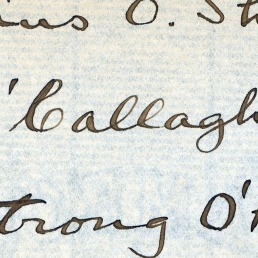 ius O. St
'Callagh
trong O'